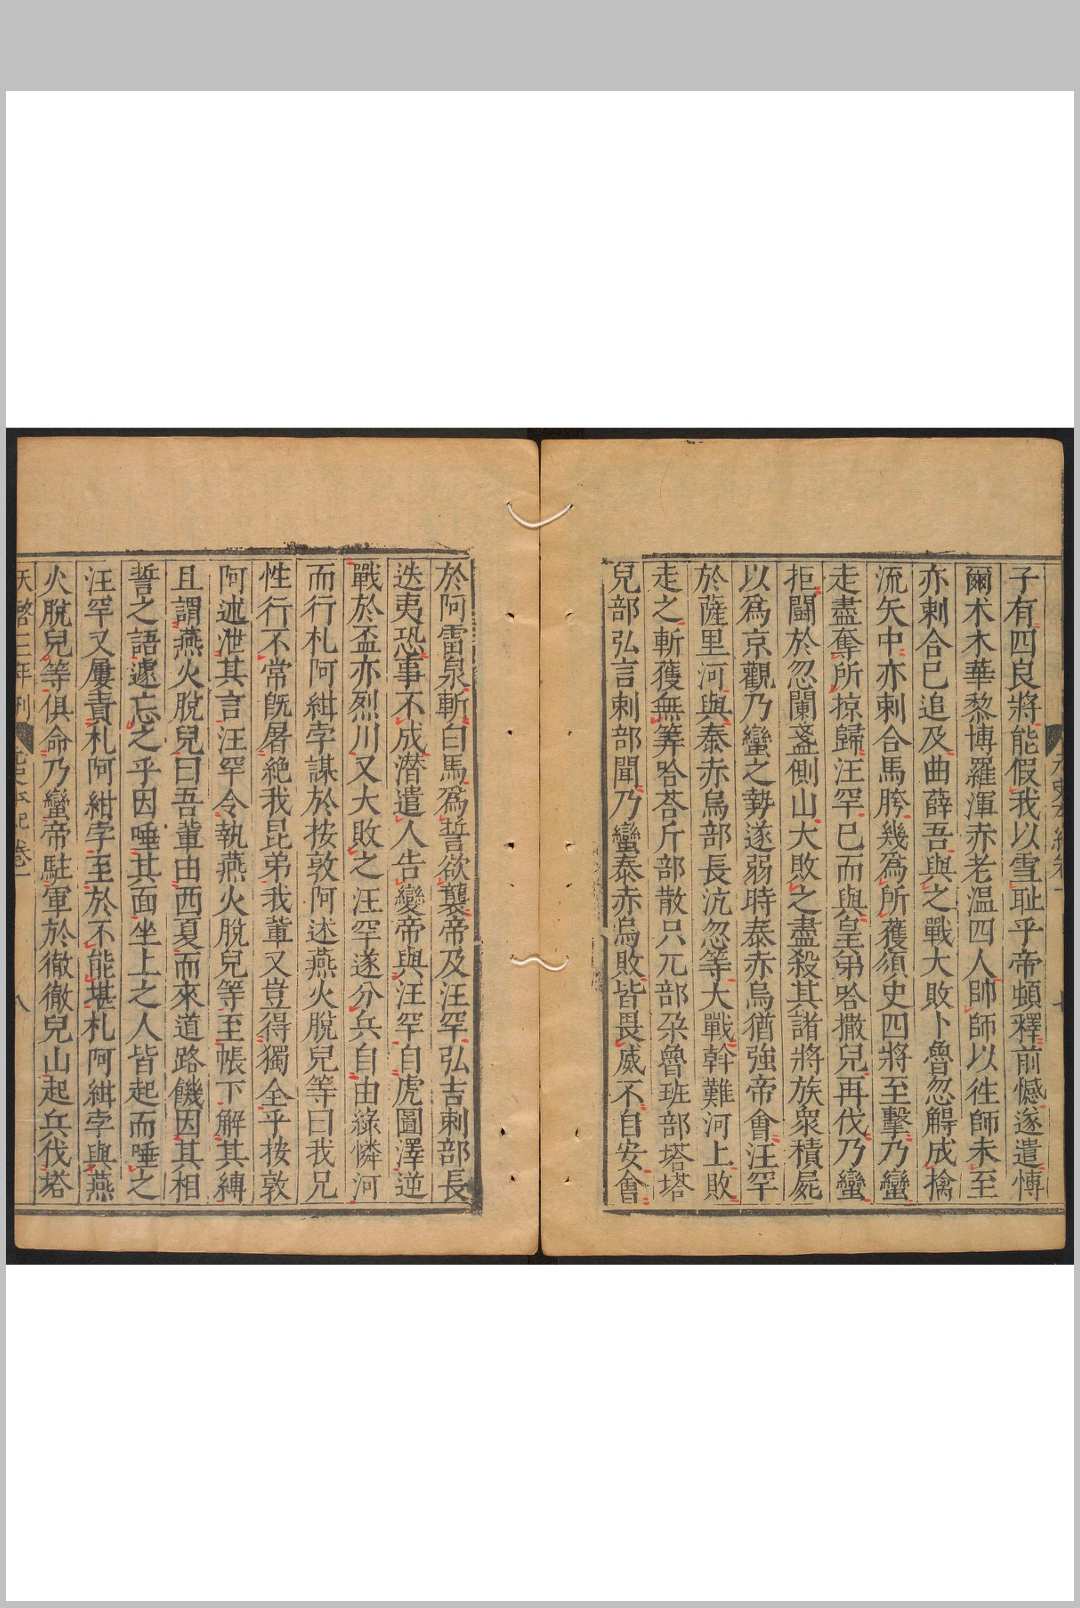 子有四良將能假我以雪耻乎帝頓釋前憾遂遣愽
爾木木華黎博羅渾赤老溫四人帥師以徃師未至
亦剌合巳追及曲薛吾與之戰大敗卜魯忽䚟成擒
流矢中亦剌合馬胯幾爲所獲須史四將至擊乃蠻
走盡奪所掠歸汪罕巳而與皇弟哈撒兒再伐乃蠻
拒鬬於忽闌盞側山大敗之盡殺其諸將族衆積屍
以爲京觀乃蠻之勢遂弱時泰赤烏猶強帝會汪罕
於薩里河與泰赤烏部長沆忽等大戰斡難河上敗
走之斬獲無筭哈荅斤部散只兀部朶魯班部塔塔
兒部弘吉剌部聞乃蠻泰赤烏敗皆畏威不自安會
於阿雷泉斬白馬爲誓欲襲帝及汪罕弘吉剌部長
迭夷恐事不成潜遣人告變帝與汪罕自虎圖澤逆
戰於盃亦烈川又大敗之汪罕遂分兵自由綠憐河
而行札阿紺孛謀於按敦阿述燕火脫兒等曰我兄
性行不常旣屠絶我昆弟我輩又豈得獨全乎按敦
阿述泄其言汪罕令執燕火脫兒等至帳下解其縛
且謂燕火脫兒曰吾輩由西夏而來道路饑因其相
誓之語遽忘之乎因唾其面坐上之人皆起而唾之
汪罕又屢責札阿紺孛至於不能堪札阿紺孛與燕
火脫兒等俱命乃蠻帝駐軍於徹徹兒山起兵伐塔
元史本紀卷一
八